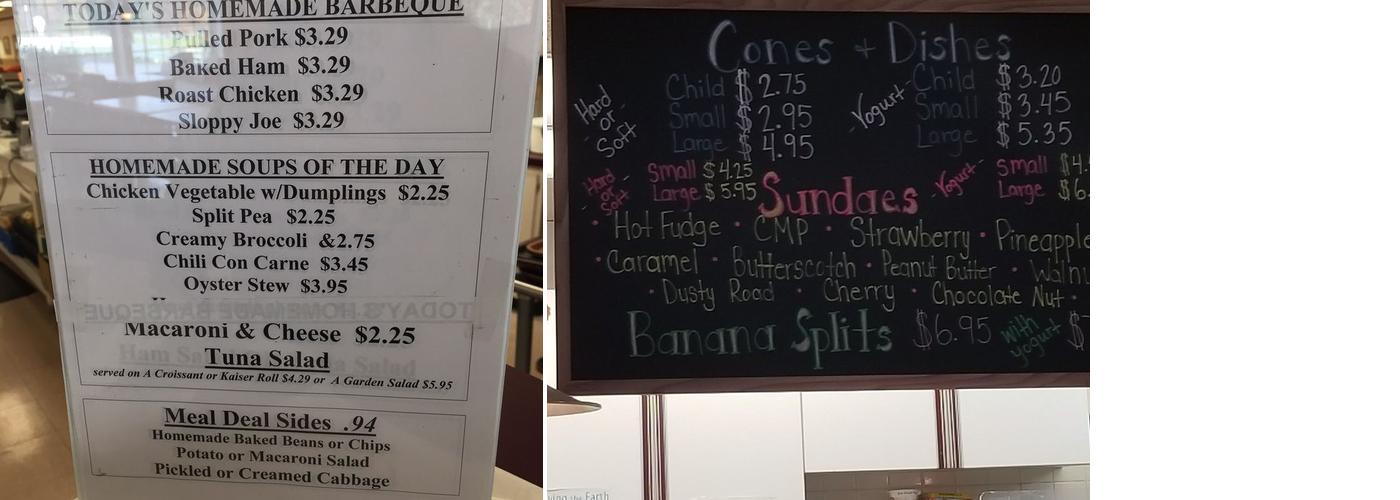 TODAY'S HOMEMADE BARBEQUE
Pulled Pork $3.29
Baked Ham $3.29
Roast Chicken $3.29
Sloppy Joe $3.29
HOMEMADE SOUPS OF THE DAY
Chicken Vegetable w/Dumplings $2.25
Split Pea $2.25
Creamy Broccoli &2.75
Chili Con Carne $3.45
Oyster Stew $3.95
Macaroni & Cheese $2.25
Tuna Salad
served on A Croissant or Kaiser Roll $4.29 or A Garden Salad $5.95
Meal Deal Sides .94
Homemade Baked Beans or Chips
Potato or Macaroni Salad
Pickled or Creamed Cabbage
Cones + Dishes
Hard or Soft
Child $2.75
Small $2.95
Large $4.95
Yogurt
Child $3.20
Small $3.45
Large $5.35
Hard or Soft
Small $4.25
Large $5.95
Sundaes
Yogurt
Small $4.
Large $6.
• Hot Fudge • CMP • Strawberry • Pineapple
• Caramel • Butterscotch • Peanut Butter • Walnu
• Dusty Road • Cherry • Chocolate Nut •
Banana Splits $6.95 with yogurt $
the Earth